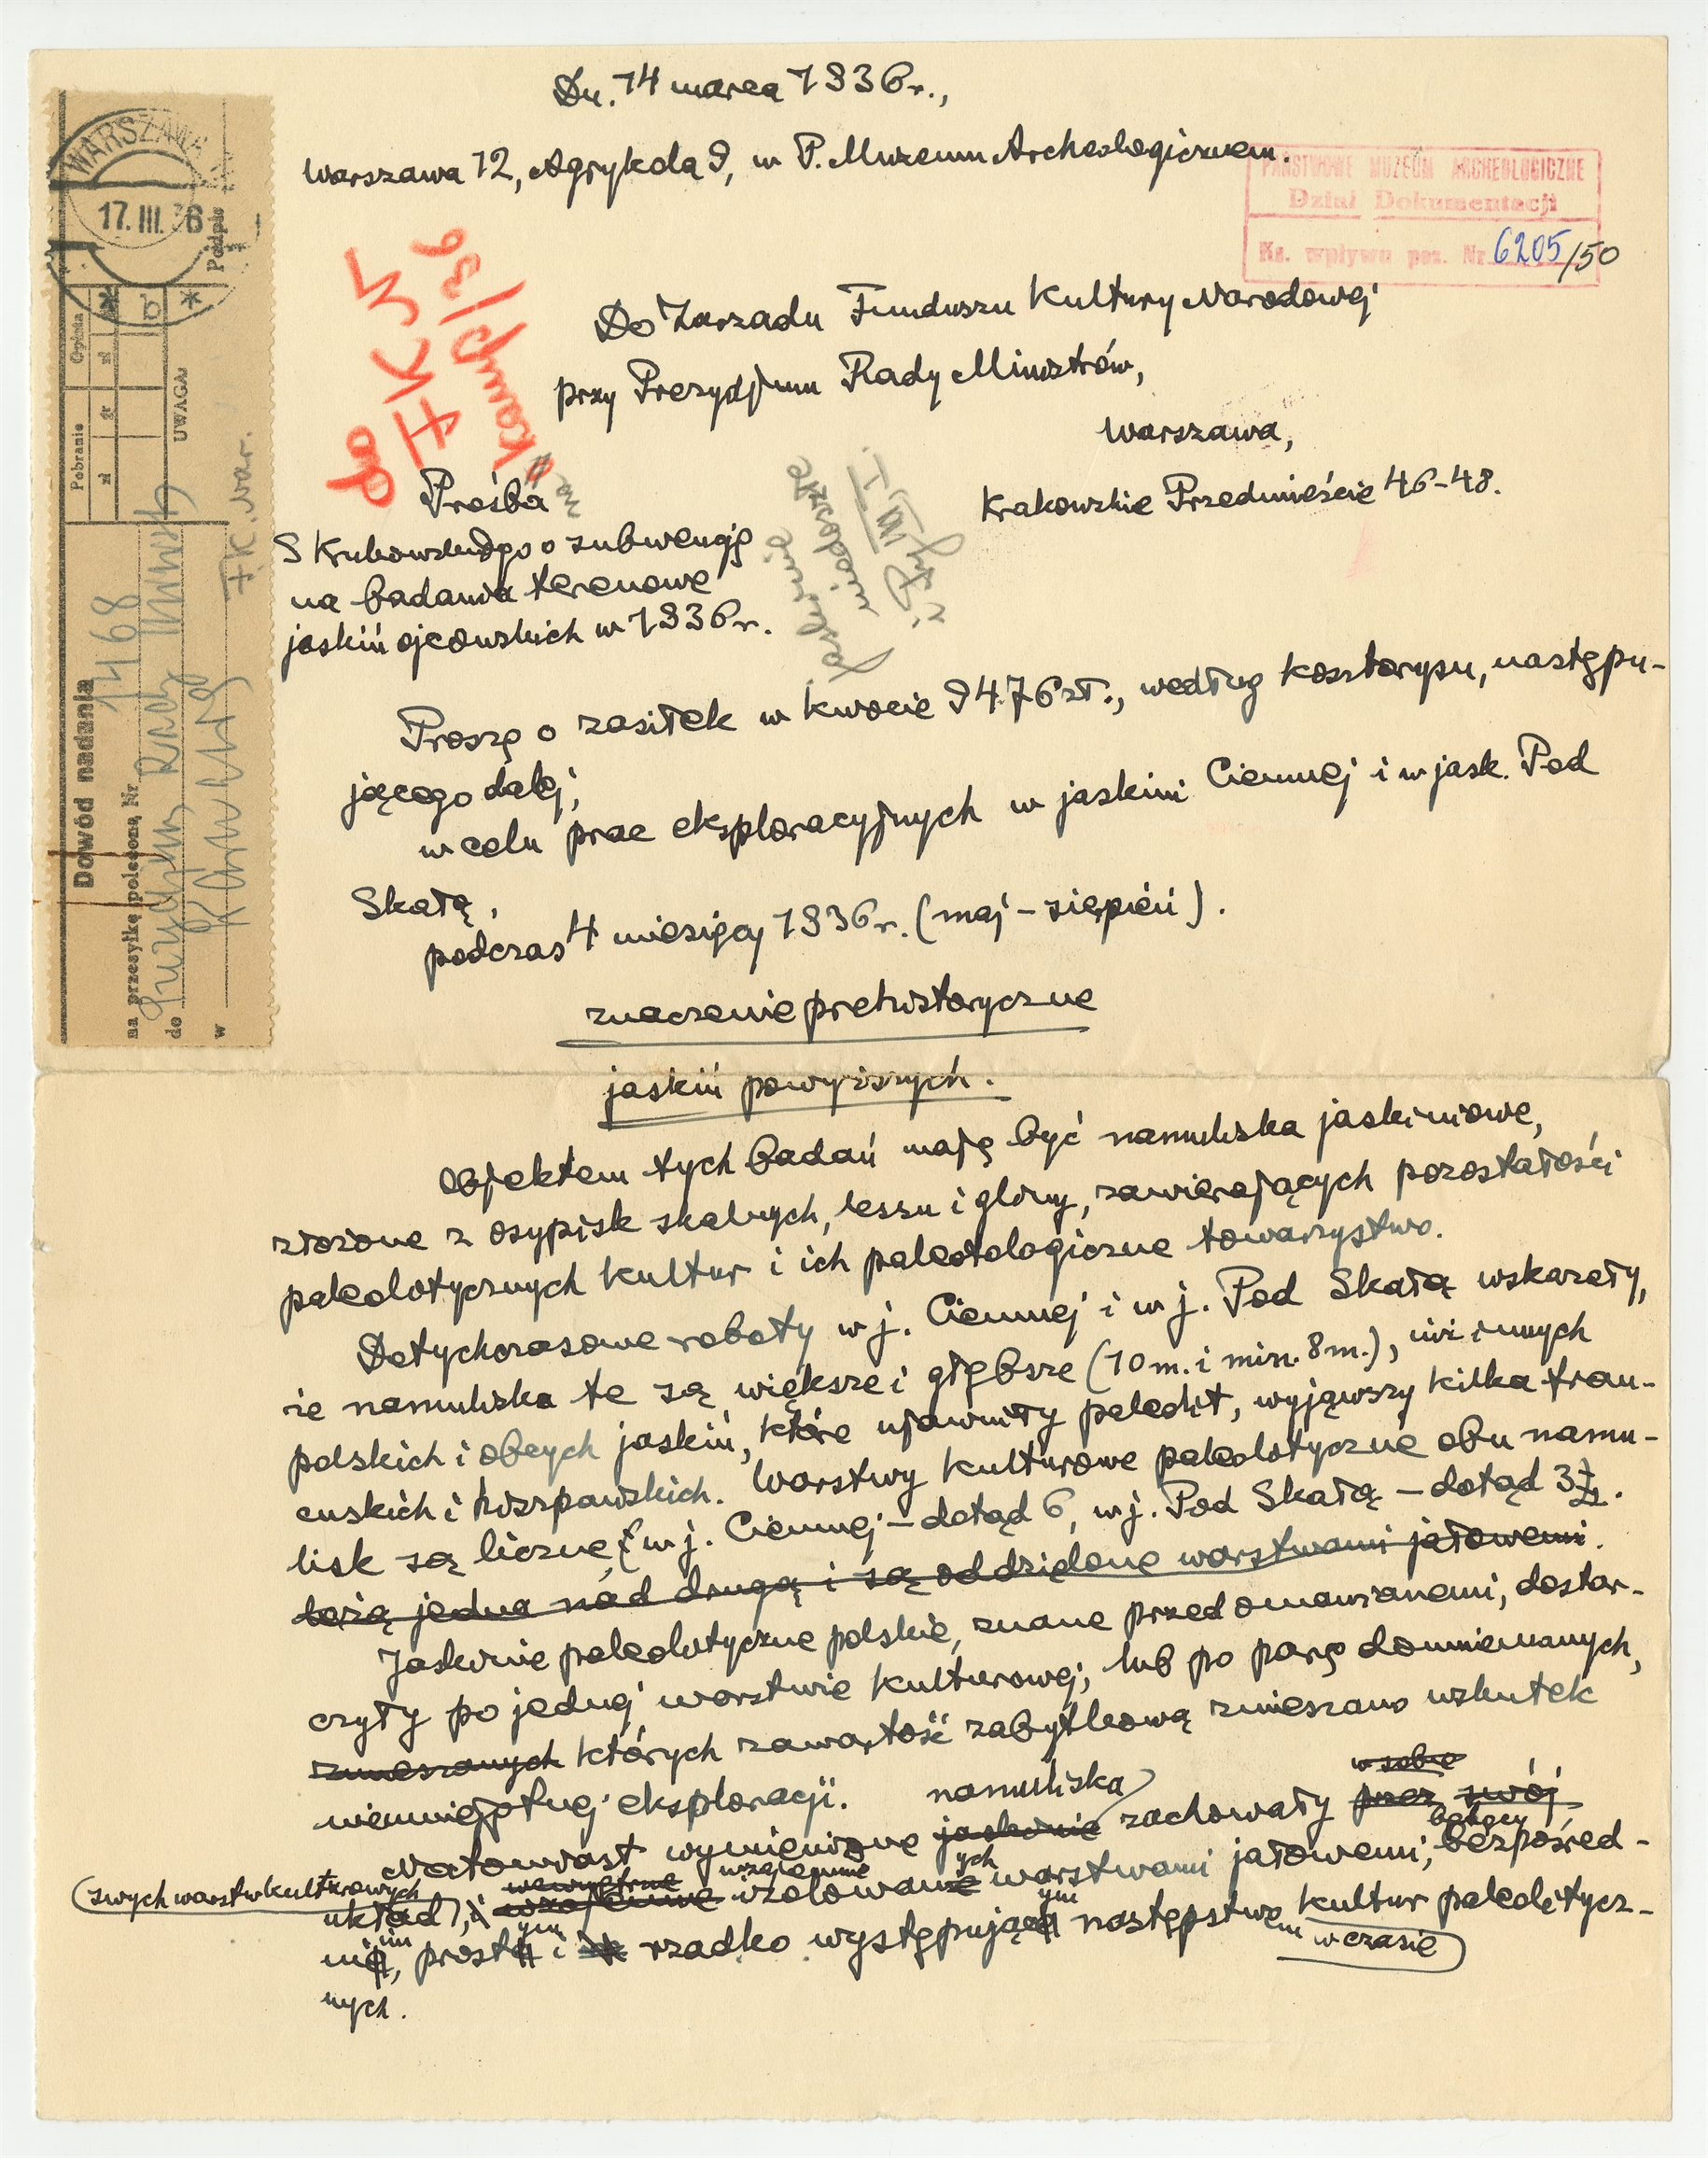 Dn. 14 marca 1936 r.,
Warszawa 12, Agrykola 9, w P. Muzeum Archeologicznem.
PAŃSTWOWE MUZEUM ARCHEOLOGICZNE
Dział Dokumentacji
Ks. wpływu poz. Nr 6205/50
WARSZAWA
17. III. 36
* b *
Dowód nadania
na przesyłkę poleconą Nr. 1468
do Prezydjum Rady
w
Pobranie
zł gr
Opłata
zł
UWAGA
Podpis
do FKN
Do Zarządu Funduszu Kultury Narodowej
przy Prezydjum Rady Ministrów,
Warszawa,
Krakowskie Przedmieście 46-48.
Prośba
S Krukowskiego o subwencję
na badania terenowe
jaskiń ojcowskich w 1936 r.
Proszę o zasiłek w kwocie 9476 zł., według kosztorysu, następu-
jącego dalej,
w celu prac eksploracyjnych w jaskini Ciemnej i w jask. Pod
Skałą,
podczas 4 miesięcy 1936 r. (maj – sierpień).
znaczenie prehistoryczne
jaskiń powyższych.
Objektem tych badań mają być namuliska jaskiniowe,
złożone z osypisk skalnych, lessu i gliny, zawierających pozostałości
paleolitycznych kultur i ich paleotologiczne towarzystwo.
Dotychczasowe roboty w j. Ciemnej i w j. Pod Skałą wskazały,
że namuliska te są większe i głębsze (10 m. i min. 8 m.), niż innych
polskich i obcych jaskiń, które ujawniły paleolit, wyjąwszy kilka fran-
cuskich i hiszpańskich. Warstwy kulturowe paleolityczne obu namu-
lisk są liczne, w j. Ciemnej – dotąd 6, w j. Pod Skałą – dotąd 3
leżą jedna nad drugą i są oddzielone warstwami jałowemi.
Jaskinie paleolityczne polskie, znane przed omawianemi, dostar-
czyły po jednej warstwie kulturowej, lub po parę domniemanych,
zmieszanych których zawartość zabytkową zmieszano wskutek
nieumiejętnej eksploracji.
namuliska w sobie
Natomiast wymienione jaskinie zachowały przez swój
zwych warstw kulturowych wewnętrzne wzajemnie ych będący
układ, i wzajemne izolowane warstwami jałowemi, bezpośred-
im ym ym
nią, prostą i rzadko występującą następstwem kultur paleolitycz-
w czasie
nych.